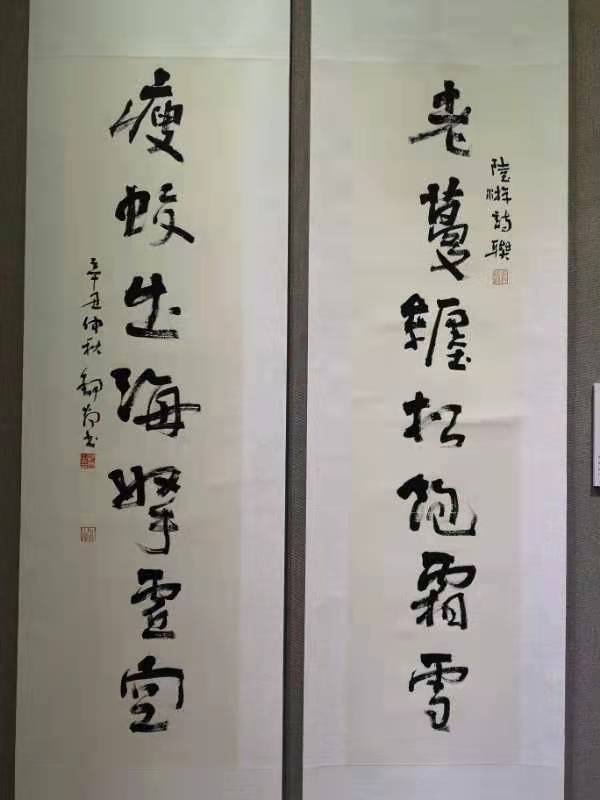 陸游詩聯
老蔓纏松飽霜雪
瘦蛟出海拏虛空
辛丑仲秋